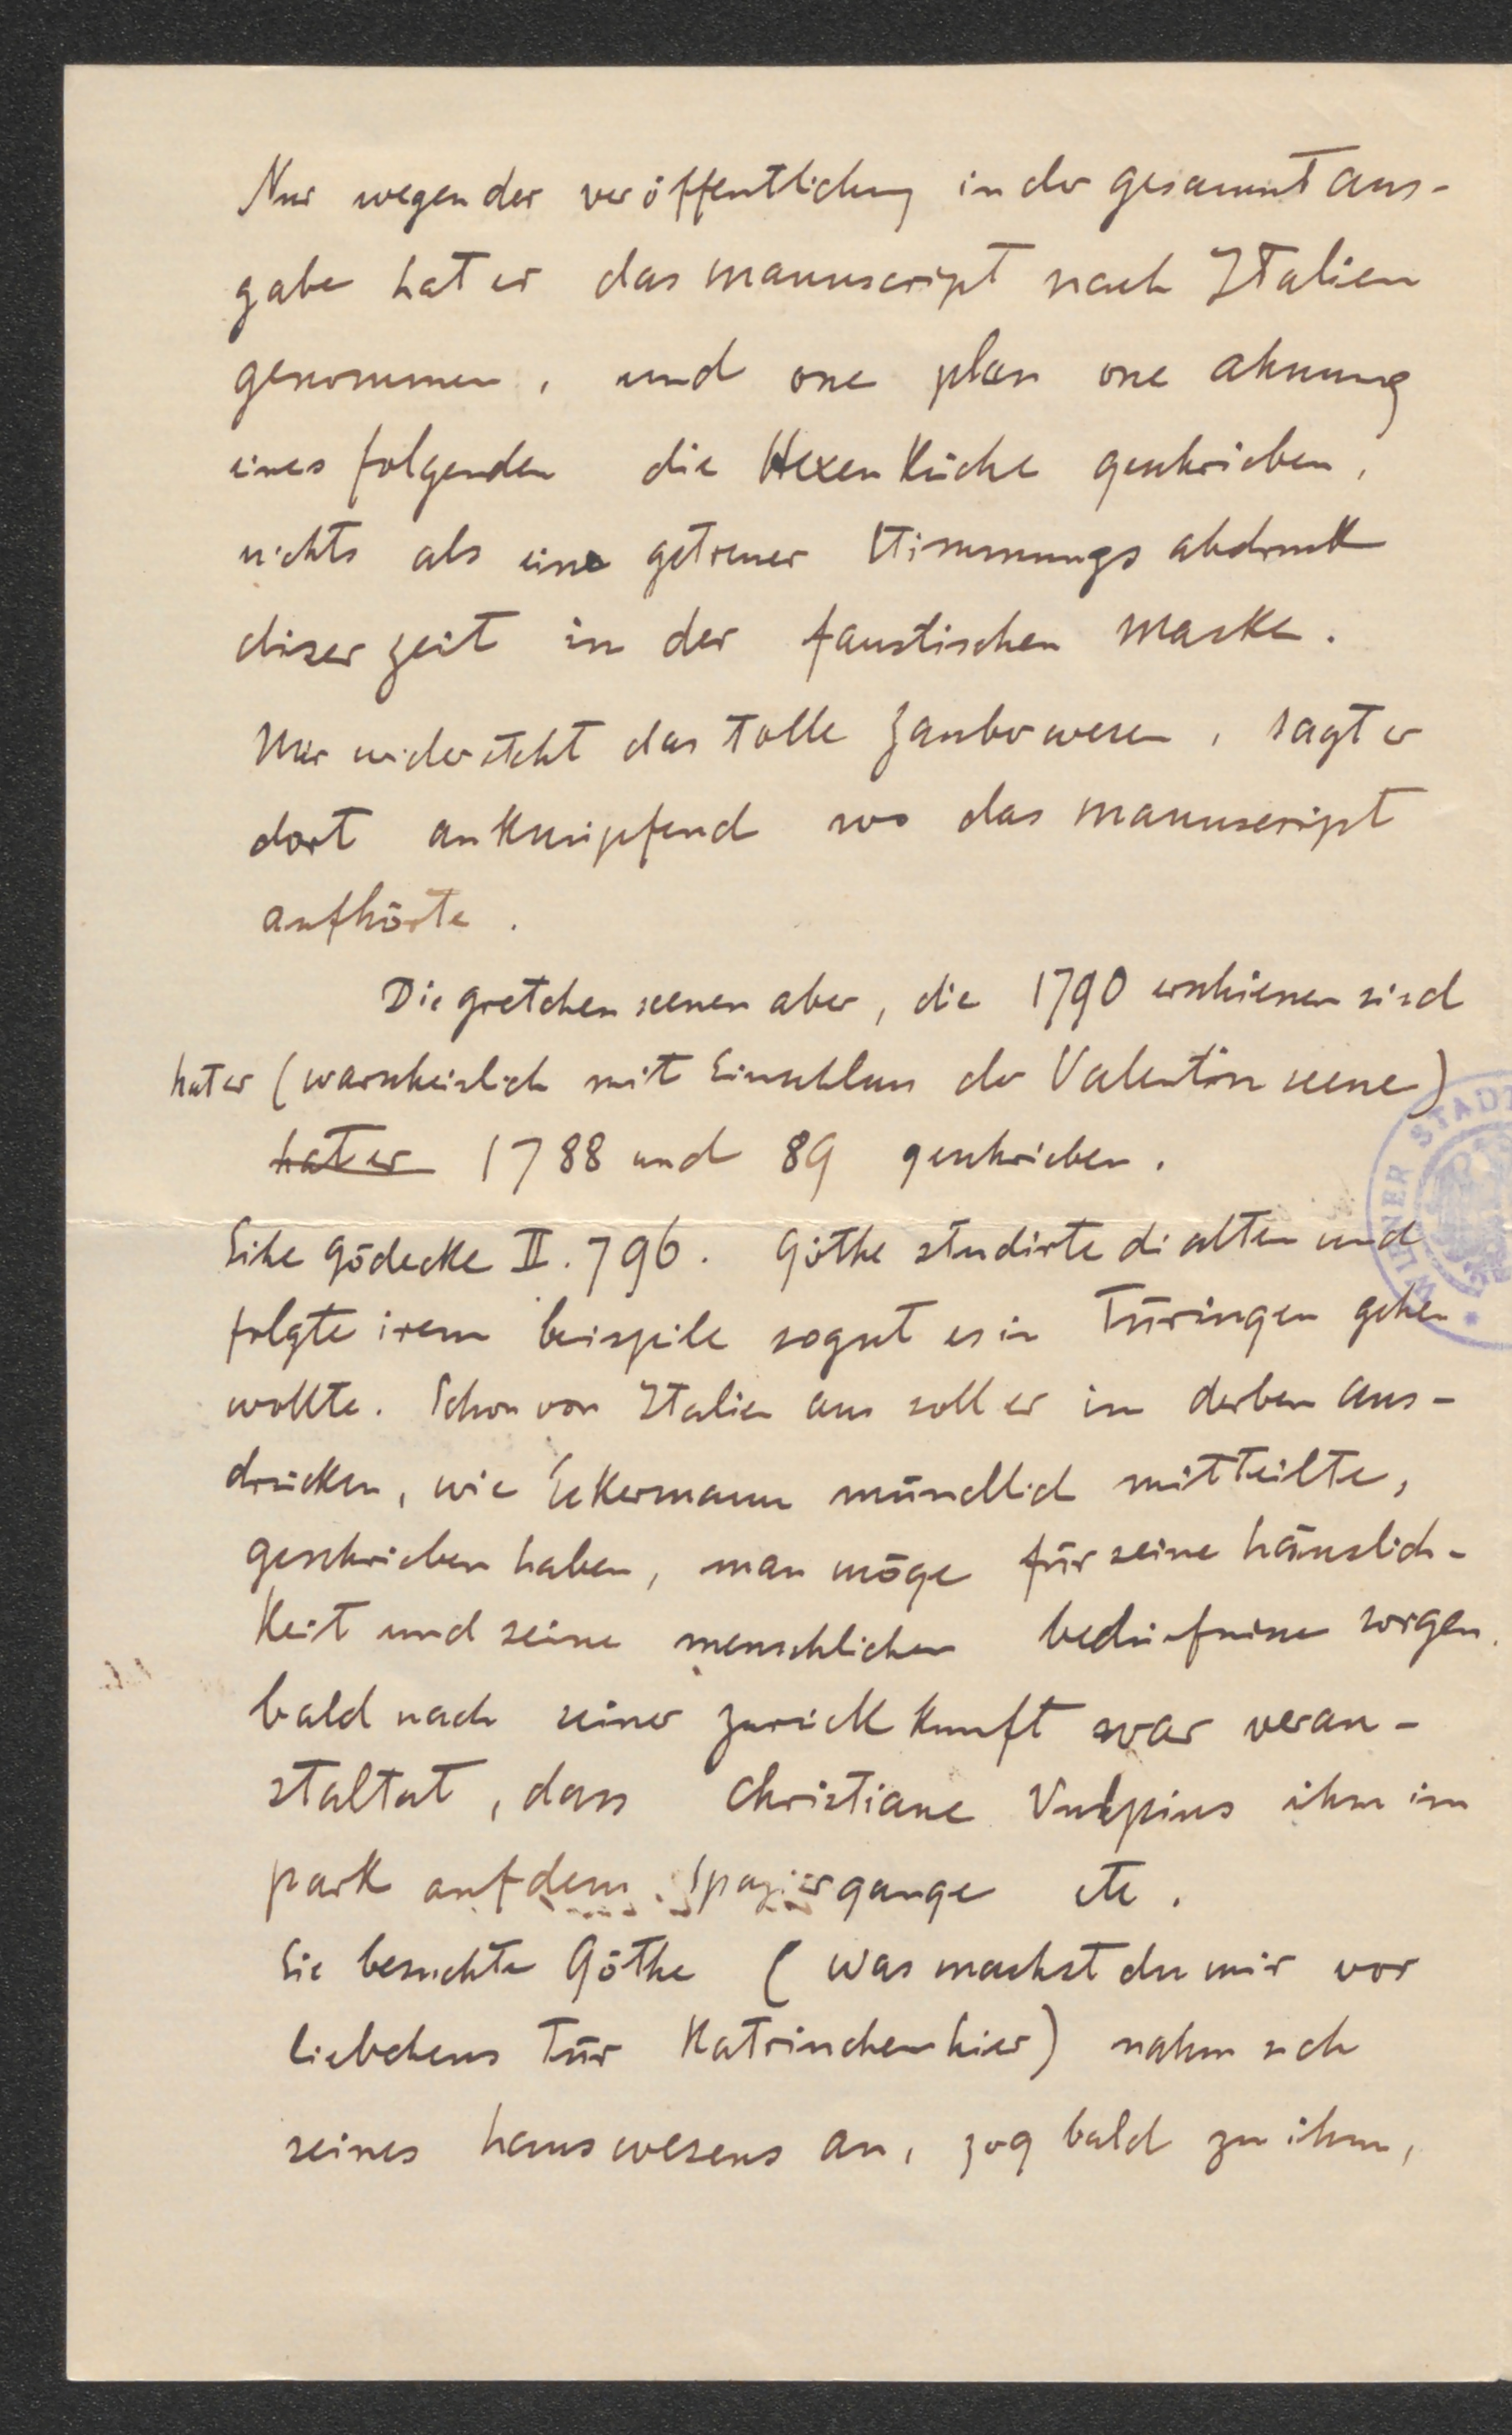 Nur wegen der veröffentlichung in der gesammtaus-
gabe hat er das manuscript nach Italien
genommen, und one plan one ahnung
eines folgenden die Hexenküche geschrieben,
nichts als eine getreuer Stimmungsabdruck
diser zeit in der faustischen maske.
Mir widersteht das tolle zauberwesen, sagt er
dort anknüpfend wo das manuscript
aufhörte.
Die gretchen scenen aber, die 1790 erschienen sind
hat er (warscheinlich mit Einschluss der Valentin scene)
hat er 1788 und 89 geschrieben.
Sihe Gödecke II. 796. Göthe studirte di alten und
folgte irem beispile sogut es in Türingen gehen
wollte. Schon von Italien aus soll er in derben aus-
drücken, wie Eckermann mündlich mitteilte,
geschrieben haben, man möge für seine häuslich-
keit und seine menschlichen bedürfnisse sorgen.
bald nach seiner zurückkunft war veran-
staltat, dass Christiane Vulpius ihm im
park auf dem Spaziergange etc.
Sie besuchte Göthe (was machst du mir vor
liebchens tür Katrinchen hier) nahm sich
seines hauswesens an, zog bald zu ihm,
WIENER STADT